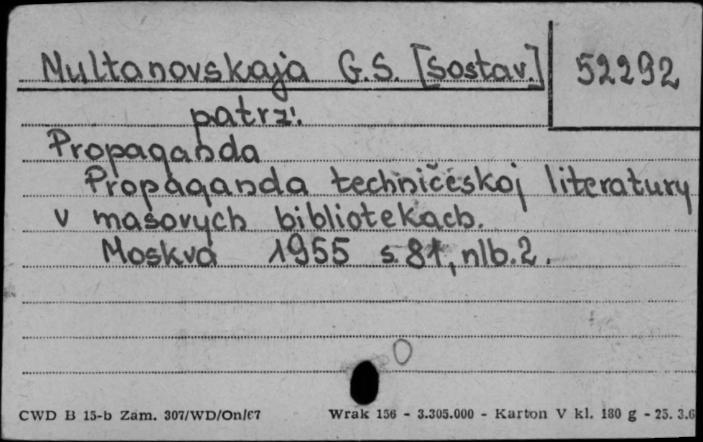 Multanovskaja G.S. [sostav.]
52292
patrz:
Propaganda
Propaganda techničeskoj literatury
v masovych bibliotekach.
Moskva 1955 s. 81, nlb. 2.
CWD B 15-b Zam. 307/WD/On/67 Wrak 156 - 3.305.000 - Karton V kl. 180 g - 25. 3.6